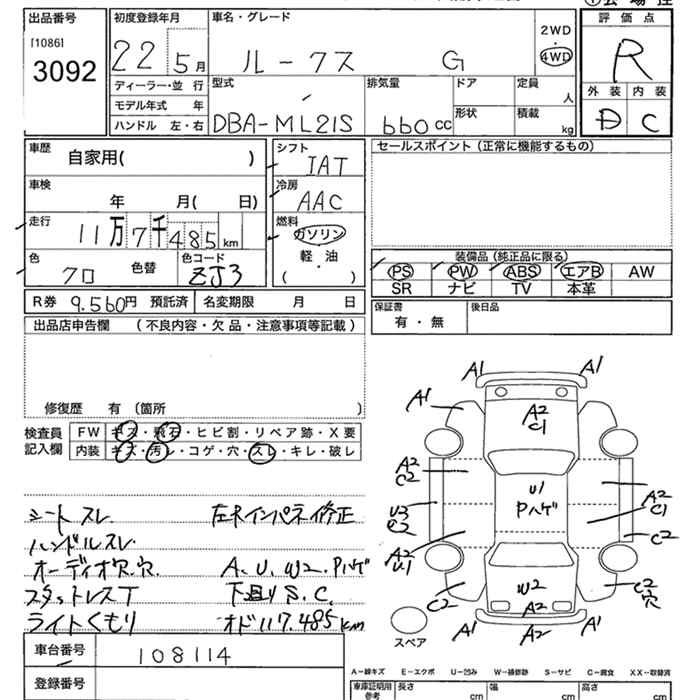 出品番号
[1086]
3092
初度登録年月
22 5月
ディーラー・並 行
モデル年式 年
ハンドル 左・右
車名・グレード
ルークス G
2WD
・
4WD
型式
DBA-ML21S
排気量
660cc
ドア
形状
定員
人
積載
kg
評 価 点
R
外 装 内 装
D C
車歴
自家用( )
車検
年 月( 日)
走行
11万7千485km
色
クロ
色替
色コード
ZJ3
シフト
IAT
冷房
AAC
燃料
ガソリン
軽・油
( )
セールスポイント(正常に機能するもの)
装備品(純正品に限る)
PS PW ABS エアB AW
SR ナビ TV 本革
R券 9.560円 預託済 名変期限 月 日
保証書
有・無
後日品
出品店申告欄 (不良内容・欠品・注意事項等記載)
修復歴 有 (箇所 )
検査員
記入欄
FW キズ・飛石・ヒビ割・リペア跡・X要
内装 キズ・汚レ・コゲ・穴・スレ・キレ・破レ
シートスレ 左RインパネL修正
ハンドルスレ
オーディオ穴.穴 A.U.W2.Pハゲ
スタットレスT 下廻りS.C.
ライトくもり オド117.485km
車台番号
108114
登録番号
A1
A1
A1
A2
C1
A2
C2
U1
Pハゲ
A2
C1
U3
C2
C2
A2
U1
C2
W2
A2
C2
穴
A1
A2
A1
スペア
A-線キズ E-エクボ U-凹み W-補修跡 S-サビ C-腐食 XX-取替済
車庫証明用
参考
長さ
cm
幅
cm
高さ
cm